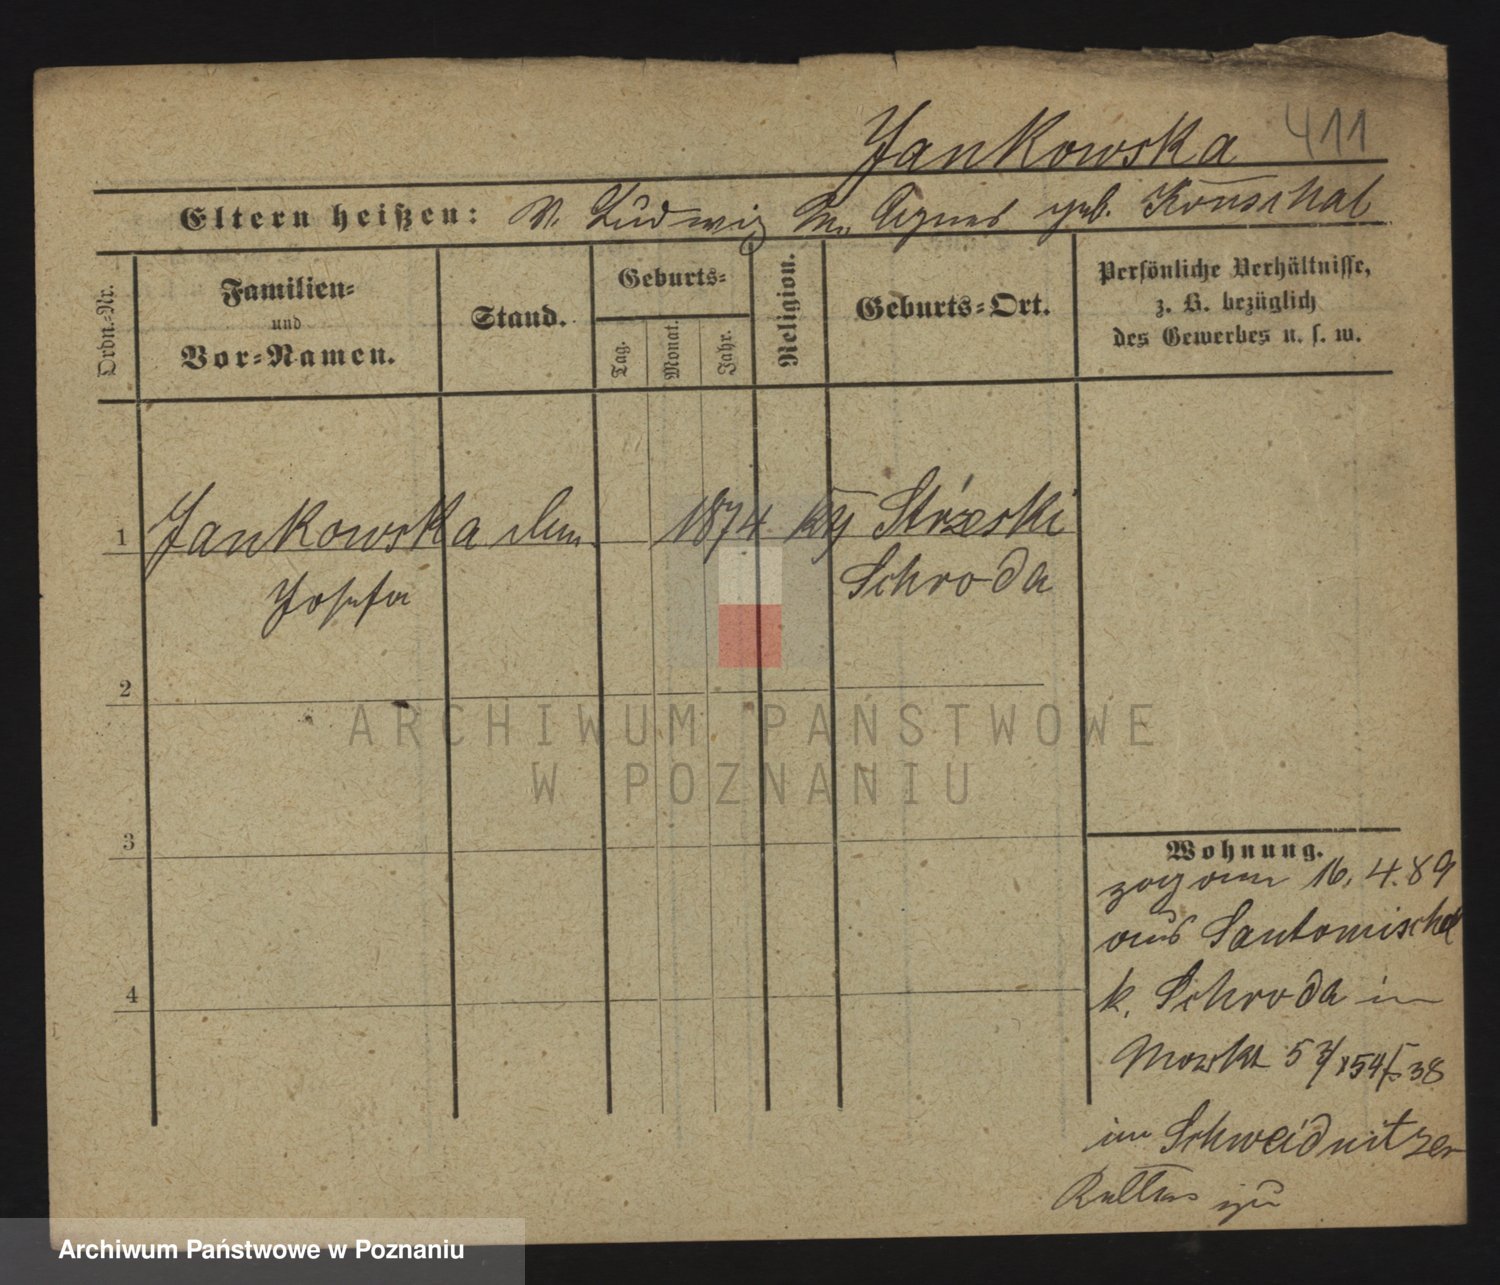 Jankowska 411
Eltern heißen: V. Ludwig M. Agnes geb.
Ordn.-Nr.
Familien-
und
Vor-Namen.
Stand.
Geburts-
Tag.
Monat.
Jahr.
Religion.
Geburts-Ort.
Persönliche Verhältnisse,
z. B. bezüglich
des Gewerbes u. s. w.
1 Jankowska 1874
Josefa Schroda
2
3
4
Wohnung.
zog am 16. 4. 89
aus Santomischel
k. Schroda in
Markt
in Schweidnitzer
zu
ARCHIWUM PAŃSTWOWE
W POZNANIU
Archiwum Państwowe w Poznaniu